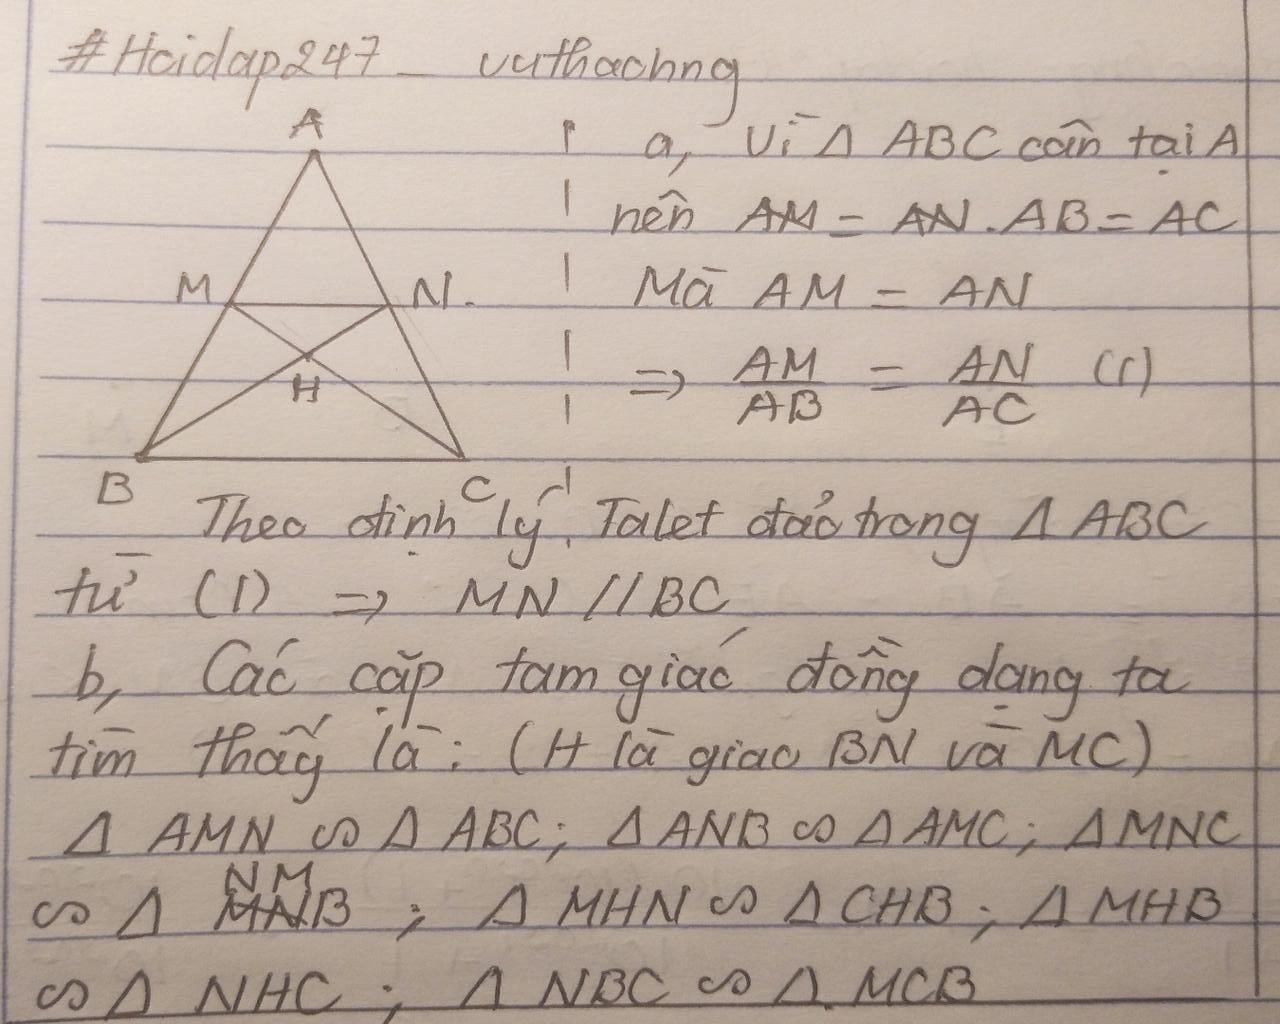 #Hoidap247_ vuthachng
A
a, Vì Δ ABC cân tại A
nên AM = AN. AB = AC
M N.
Mà AM = AN
H
⇒ AM/AB = AN/AC (1)
B C
Theo định lý Talet đảo trong Δ ABC
từ (1) ⇒ MN // BC
b, Các cặp tam giác đồng dạng ta
tìm thấy là: (H là giao BN và MC)
Δ AMN ∽ Δ ABC; Δ ANB ∽ Δ AMC; Δ MNC
∽ Δ NMB ; Δ MHN ∽ Δ CHB; Δ MHB
∽ Δ NHC ; Δ NBC ∽ Δ MCB